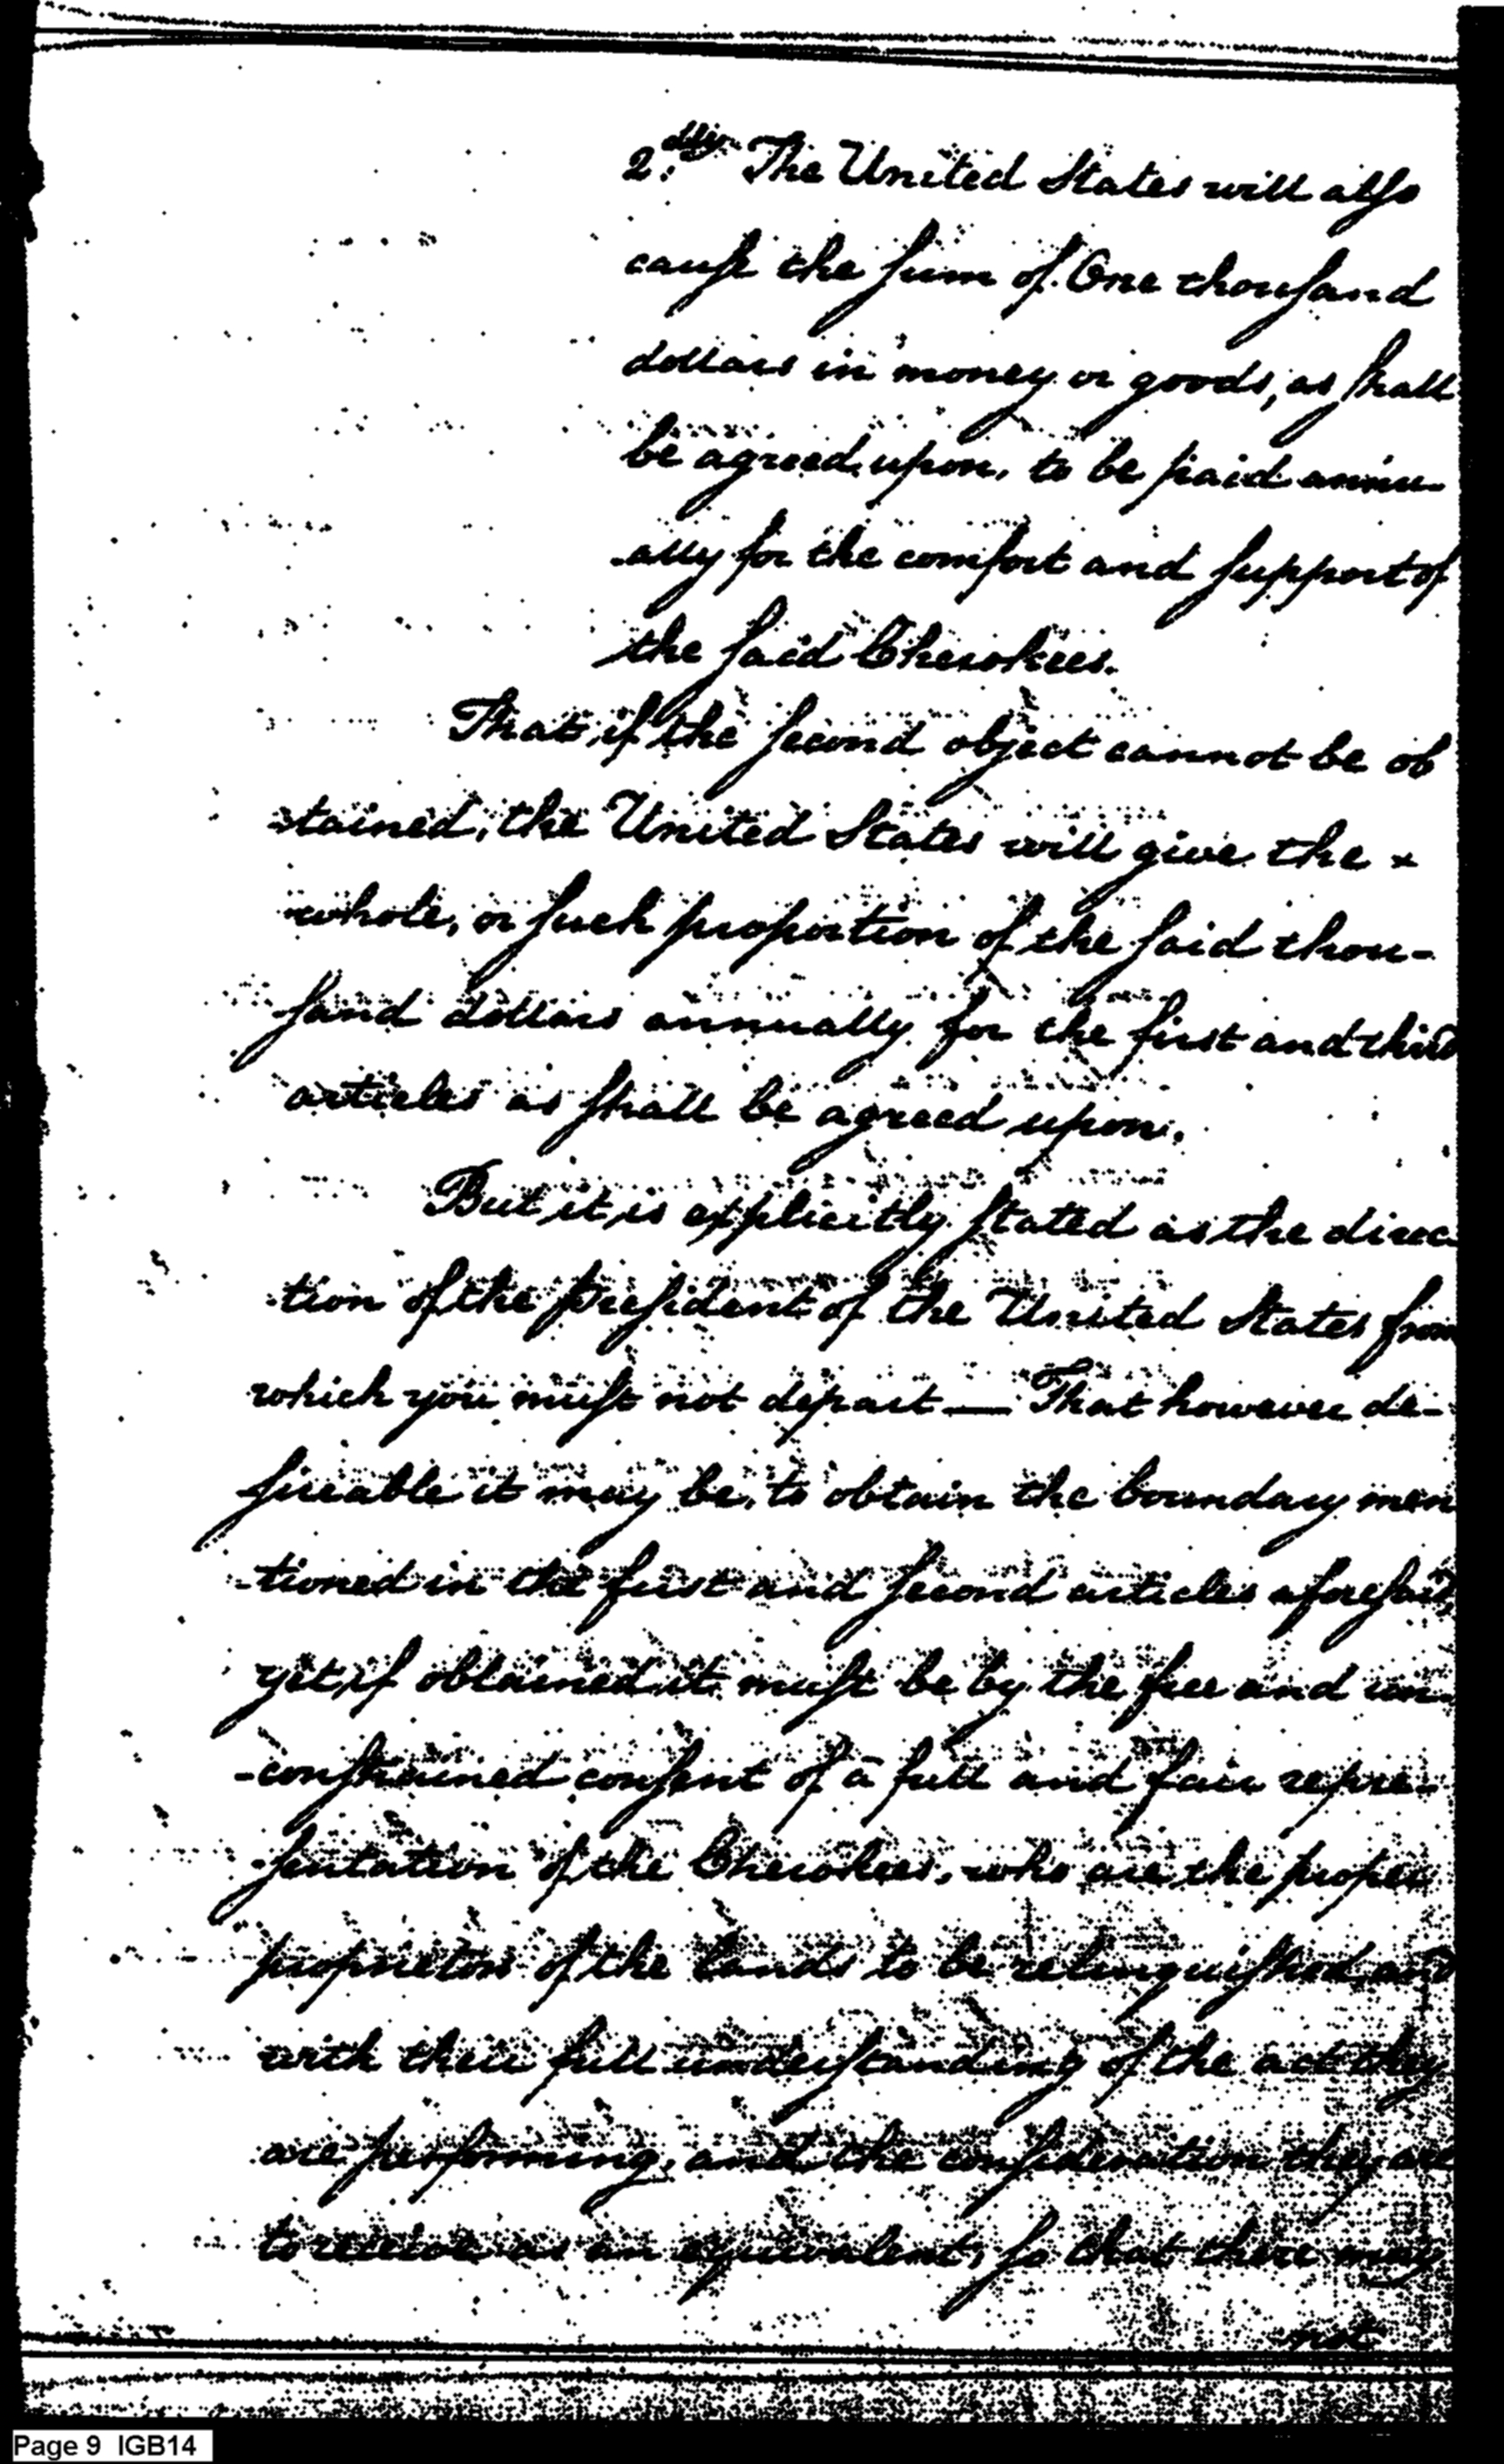 2.dly The United States will also
cause the sum of One thousand
dollars in money or goods, as shall
be agreed upon, to be paid annu-
-ally for the comfort and support of
the said Cherokees.
That if the second object cannot be ob
-tained, the United States will give the x
whole, or such proportion of the said thou-
-sand dollars annually for the first and third
articles as shall be agreed upon.
But it is explicitly stated as the direc
-tion of the president of the United States from
which you must not depart — That however de-
sireable it may be, to obtain the boundary men
-tioned in the first and second articles aforesaid,
yet, if obtained it must be by the free and un-
-constrained consent of a full and fair repre-
-sentation of the Cherokees, who are the proper
proprietors of the lands to be relinquished, and
with their full understanding of the act they
are performing, and the consideration they are
to receive as an equivalent, so that there may
not
Page 9 IGB14